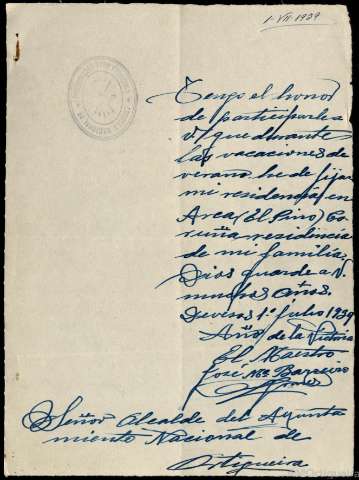 1-VII-1939
Tengo el honor
de participarle a
V. que durante
las vacaciones de
verano he de fijar
mi residencia en
Arca (El Pino) Co-
ruña residencia
de mi familia.
Dios guarde a V.
muchos años.
Devesos 1º julio 1939
Año de la Victoria
El Maestro
José Mª Barreiro
Señor Alcalde del Ayunta
miento Nacional de
Ortigueira